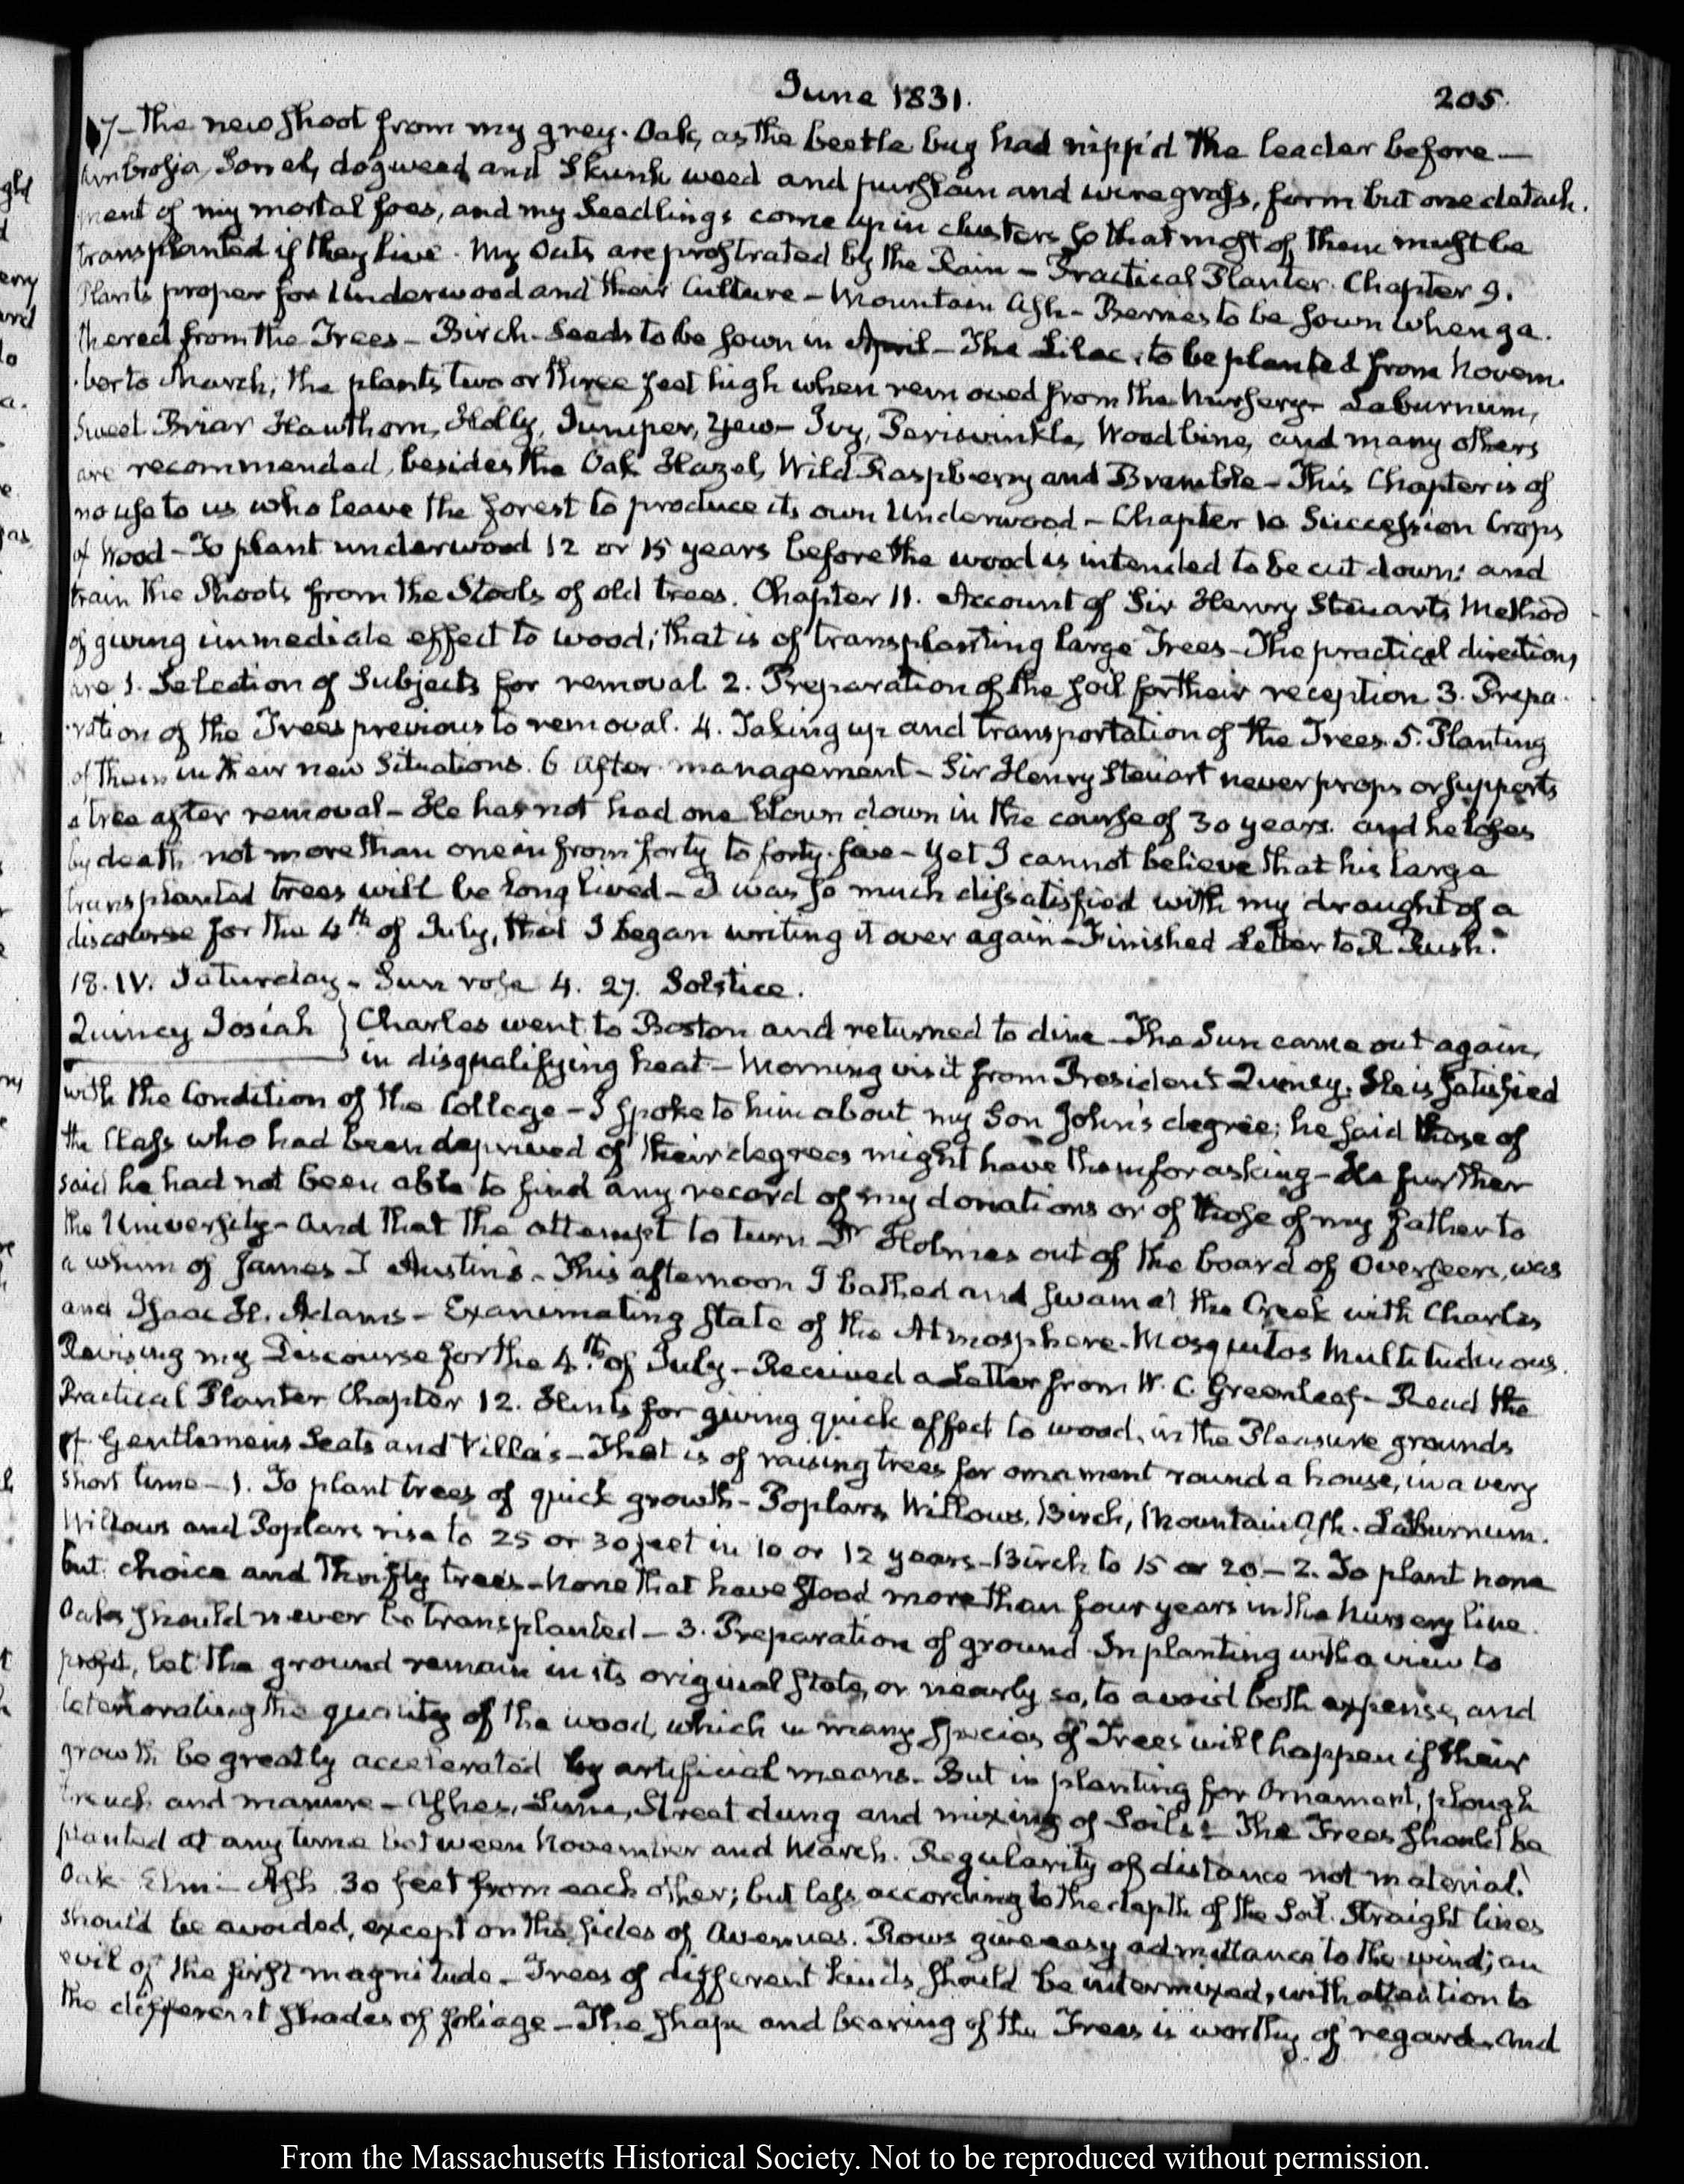 June 1831.
205.
17- The new shoot from my grey. Oak, as the beetle bug had nipp'd the leader before —
Ambrosia, Sorrel, dogweed and Skunk weed and purslain and wire grass, form but one detach.
ment of my mortal foes, and my Seedlings come up in clusters so that most of them must be
transplanted if they live. My Oats are prostrated by the Rain — Practical Planter. Chapter 9.
Plants proper for Underwood and their Culture — Mountain Ash — Berries to be sown when ga.
thered from the Trees — Birch — Seeds to be sown in April — The Lilac, to be planted from Novem.
ber to March; the plants two or three feet high when removed from the Nursery — Laburnum,
Sweet Briar Hawthorn, Holly, Juniper, Yew — Ivy, Periwinkle, Woodbine, and many others
are recommended, besides the Oak Hazel, Wild Raspberry and Bramble — This Chapter is of
no use to us who leave the forest to produce its own Underwood — Chapter 10 Succession Crops
of Wood — To plant underwood 12 or 15 years before the wood is intended to be cut down: and
train the Shoots from the Stools of old trees. Chapter 11. Account of Sir Henry Steuarts Method
of giving immediate effect to wood; that is of transplanting large Trees — The practical directions
are 1. Selection of Subjects for removal 2. Preparation of the soil for their reception 3. Prepa.
ration of the Trees previous to removal. 4. Taking up and transportation of the Trees. 5. Planting
of them in their new Situations. 6 After management — Sir Henry Steuart never props or supports
a tree after removal — He has not had one blown down in the course of 30 years. and he loses
by death not more than one in from forty to forty-five — Yet I cannot believe that his large
transplanted trees will be long lived — I was so much dissatisfied with my draught of a
discourse for the 4th of July, that I began writing it over again — Finished Letter to R Rush.
18. IV. Saturday — Sun rose 4. 27. Solstice.
Quincy Josiah } Charles went to Boston and returned to dine — The Sun came out again,
in disqualifying heat — Morning visit from President Quincy. He is satisfied
with the Condition of the College — I spoke to him about my Son John's degree; he said those of
the Class who had been deprived of their degrees might have them for asking — He further
said he had not been able to find any record of my donations or of those of my father to
the University — and that the attempt to turn Dr Holmes out of the board of Overseers, was
a whim of James T Austin's — This afternoon I bathed and swam at the Creek with Charles
and Isaac H. Adams — Exanimating state of the Atmosphere — Mosquitos Multitudinous.
Revising my Discourse for the 4th of July — Received a Letter from W. C. Greenleaf — Read the
Practical Planter Chapter 12. Hints for giving quick effect to wood, in the Pleasure grounds
of Gentlemens Seats and Villa's — That is of raising trees for ornament round a house, in a very
short time — 1. To plant trees of quick growth — Poplars, Willows, Birch, Mountain Ash. Laburnum.
Willows and Poplars rise to 25 or 30 feet in 10 or 12 years — Birch to 15 or 20 — 2. To plant none
but choice and Thrifty trees — None that have stood more than four years in the Nursery line.
Oaks should never be transplanted — 3. Preparation of ground In planting with a view to
profit, let the ground remain in its original state, or nearly so, to avoid both expense, and
deteriorating the quality of the wood, which in many species of Trees will happen if their
growth be greatly accelerated by artificial means — But in planting for Ornament, plough
trench and manure — Ashes, Lime, Street dung and mixing of Soils — The Trees should be
planted at any time between November and March. Regularity of distance not material.
Oak — Elm — Ash 30 feet from each other; but less according to the depth of the Soil. Straight lines
should be avoided, except on the sides of Avenues. Rows give easy admittance to the wind; an
evil of the first magnitude — Trees of different kinds should be intermixed, with attention to
the different shades of foliage — The shape and bearing of the Trees is worthy of regard. And
From the Massachusetts Historical Society. Not to be reproduced without permission.